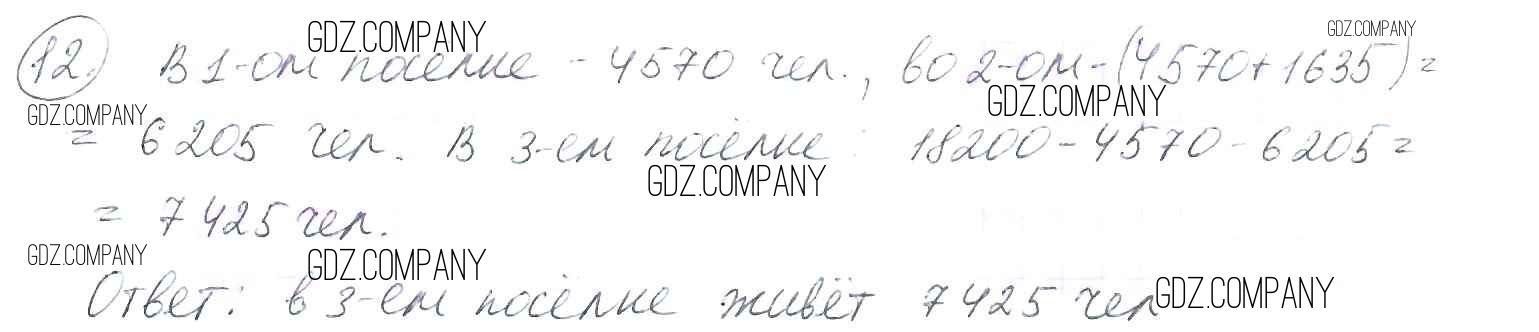 12. В 1-ом поселке - 4570 чел., во 2-ом - (4570+1635) =
= 6205 чел. В 3-ем посёлке : 18200 - 4570 - 6205 =
= 7425 чел.
Ответ: в 3-ем посёлке живёт 7425 чел
GDZ.COMPANY
GDZ.COMPANY
GDZ.COMPANY
GDZ.COMPANY
GDZ.COMPANY
GDZ.COMPANY
GDZ.COMPANY
GDZ.COMPANY